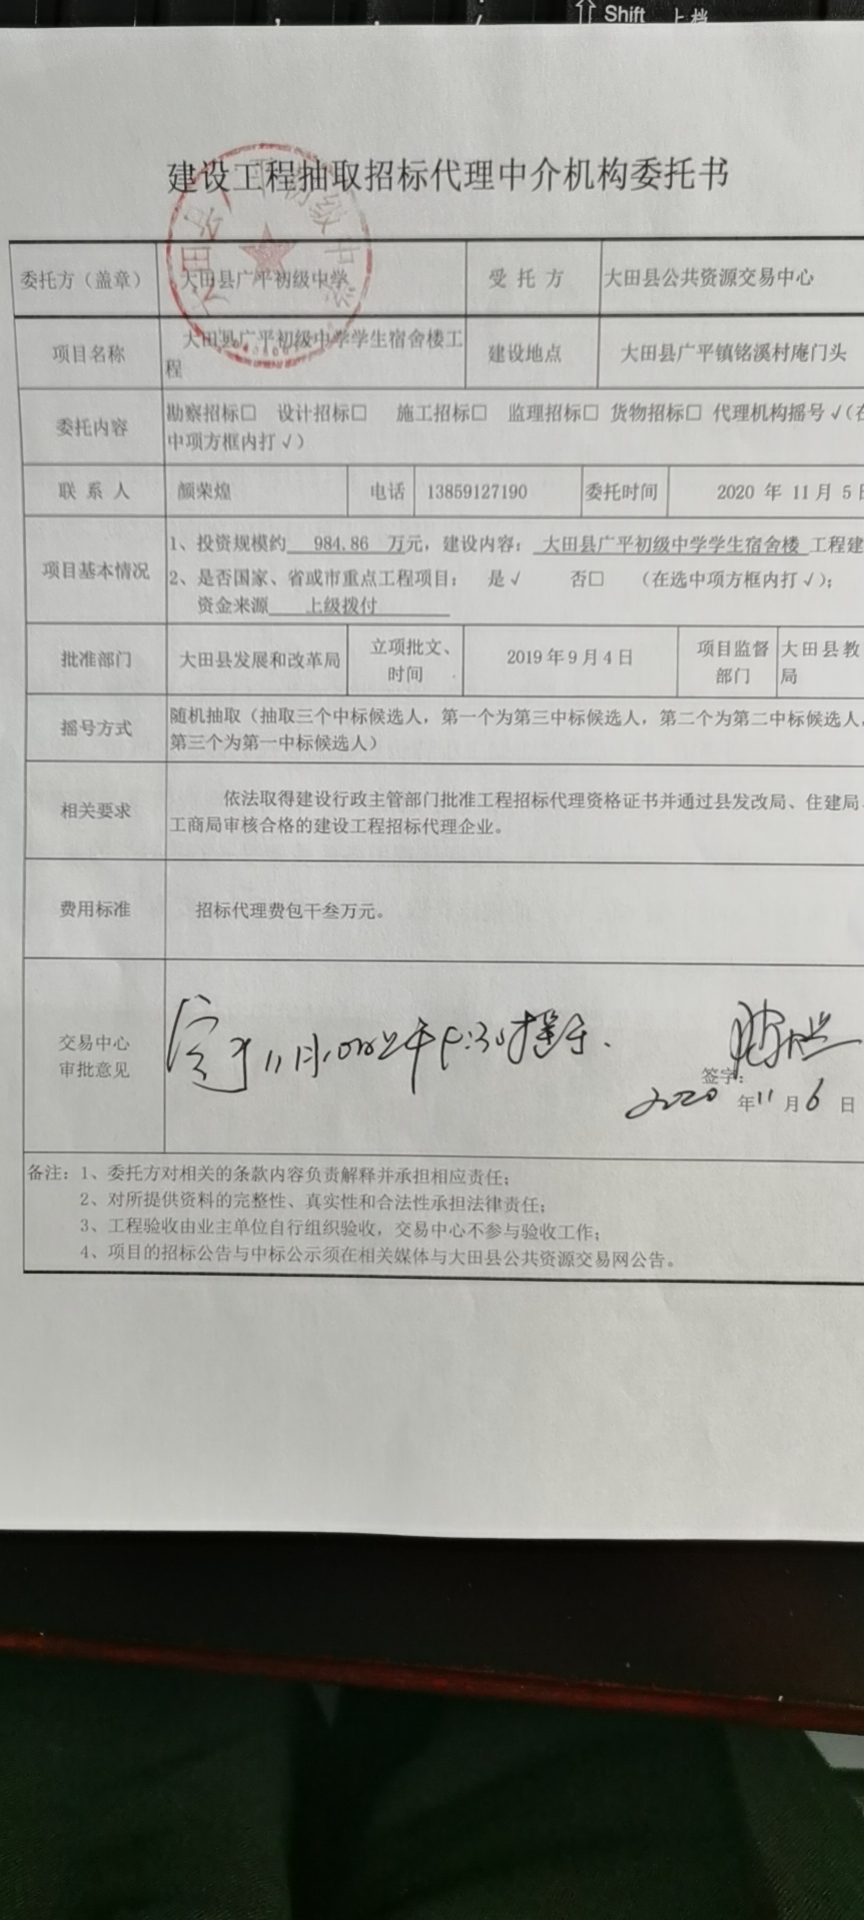 Shift 上档
建设工程抽取招标代理中介机构委托书
委托方（盖章） 大田县广平初级中学 受托方 大田县公共资源交易中心
项目名称 大田县广平初级中学学生宿舍楼工
程
建设地点 大田县广平镇铭溪村庵门头
委托内容 勘察招标□ 设计招标□ 施工招标□ 监理招标□ 货物招标□ 代理机构摇号√（在
中项方框内打√）
联系人 颜荣煌 电话 13859127190 委托时间 2020 年 11 月 5日
项目基本情况
1、投资规模约 984.86 万元，建设内容： 大田县广平初级中学学生宿舍楼 工程建
2、是否国家、省或市重点工程项目： 是√ 否□ （在选中项方框内打√）；
资金来源 上级拨付
批准部门 大田县发展和改革局 立项批文、
时间
2019年9月4日 项目监督
部门
大田县教
局
摇号方式 随机抽取（抽取三个中标候选人，第一个为第三中标候选人，第二个为第二中标候选人，
第三个为第一中标候选人）
相关要求 依法取得建设行政主管部门批准工程招标代理资格证书并通过县发改局、住建局、
工商局审核合格的建设工程招标代理企业。
费用标准 招标代理费包干叁万元。
交易中心
审批意见
定于11月10日上午 :30摇号.
签字：
2020 年11月6日
备注：1、委托方对相关的条款内容负责解释并承担相应责任；
2、对所提供资料的完整性、真实性和合法性承担法律责任；
3、工程验收由业主单位自行组织验收，交易中心不参与验收工作；
4、项目的招标公告与中标公示须在相关媒体与大田县公共资源交易网公告。